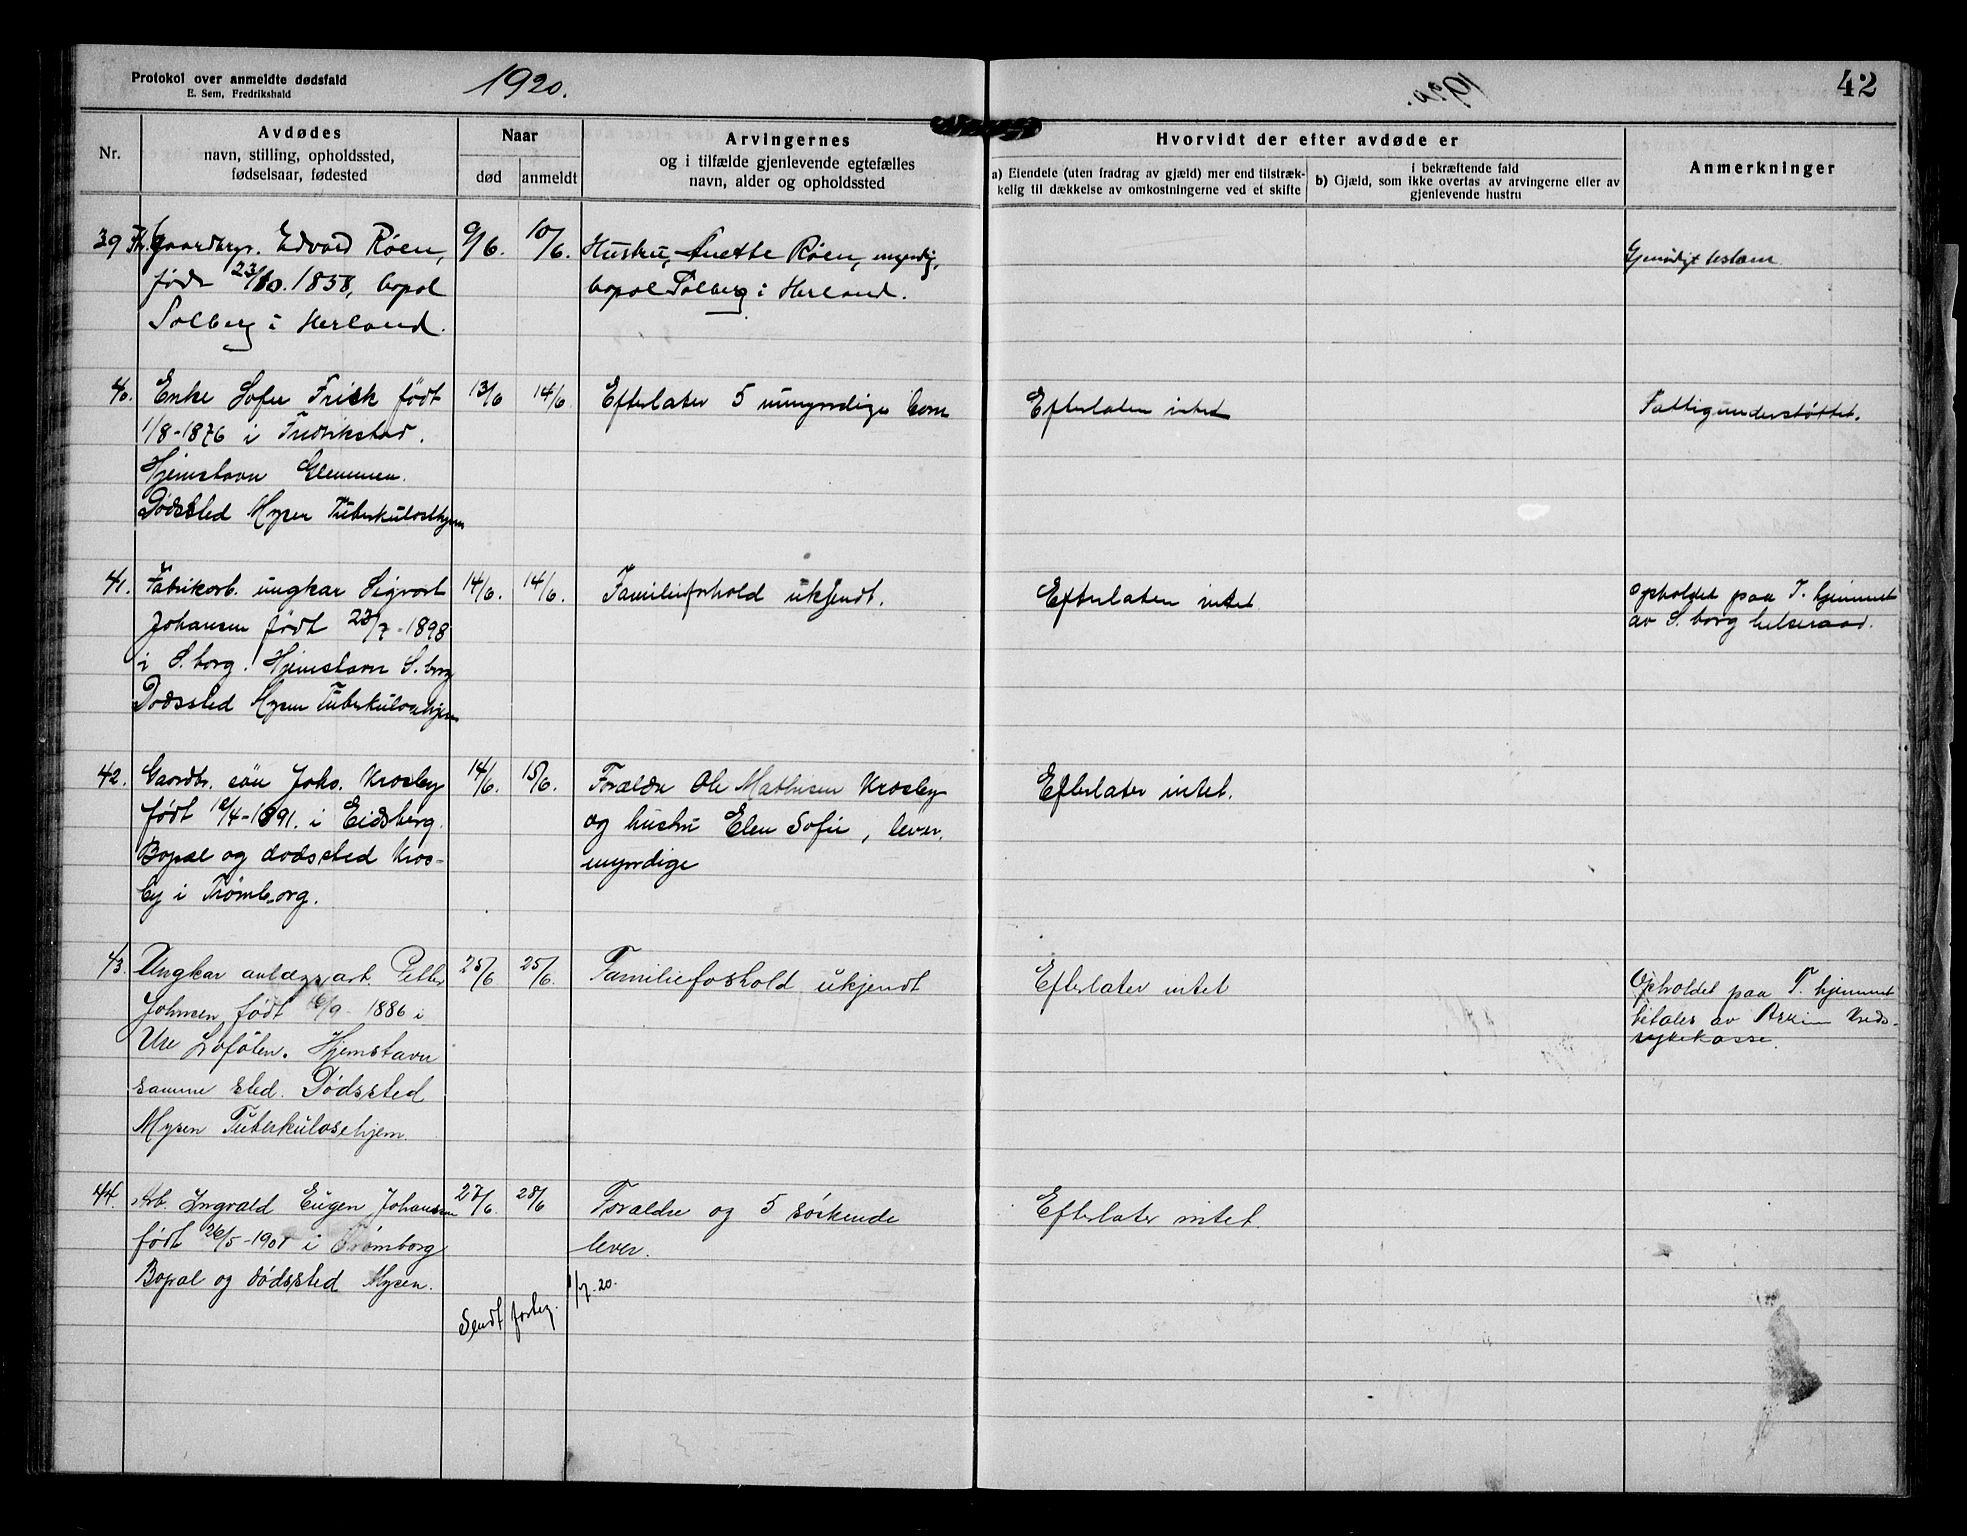 Protokol over anmeldte dødsfald
E. Sem, Fredrikshald
1920.
42
Nr.
Avdødes
navn, stilling, opholdssted,
fødselsaar, fødested
Naar
død
anmeldt
Arvingernes
og i tilfælde gjenlevende egtefælles
navn, alder og opholdssted
Hvorvidt der efter avdøde er
a) Eiendele (uten fradrag av gjæld) mer end tilstræk-
kelig til dækkelse av omkostningerne ved et skifte
i bekræftende fald
b) Gjæld, som ikke overtas av arvingerne eller av
gjenlevende hustru
Anmerkninger
39 Gaardbr. Edvard Röen,
født 23/10. 1858, bopæl
Solberg i Herland.
9/6. 10/6.
Hustru, Anette Röen, myndig,
bopæl Solberg i Herland.
40. Enke Sofie Frisk født
1/8-1876 i Fredrikstad.
Hjemstavn Glemmen.
Dødssted Mysen Tuberkulosehjem
13/6 14/6
Efterlater 5 umyndige barn
Efterlater intet
Fattigunderstøttet.
41. Fabrikarb. ungkar Sigvart
Johansen født 23/7-1898
i S.borg. Hjemstavn S.borg
Dødssted Mysen Tuberkulosehjem
14/6. 14/6.
Familieforhold ukjendt.
Efterlater intet
Opholdet paa T. hjemmet
av S.borg helseraad.
42. Gaardbr. søn Johs. Krosby
født 12/4-1891. i Eidsberg.
Bopæl og dødssted Kros-
by i Trømborg.
14/6. 15/6.
Forældre Ole Mathisen Krosby
og hustru Elen Sofie, lever,
myndige
Efterlater intet.
43. Ungkar anlægsarb. Petter
Johnsen født 16/9-1886 i
Ure Lofoten. Hjemstavn
samme sted. Dødssted
Mysen Tuberkulosehjem.
25/6 25/6.
Familieforhold ukjendt
Efterlater intet
Opholdet paa T. hjemmet
betales av Askim Kreds-
sykekasse.
44. Arb. Ingvald Eugen Johansen
født 26/5-1901 i Trømborg
Bopæl og dødssted Mysen.
27/6. 28/6
Forældre og 5 søskende
lever.
Efterlater intet.
Sendt 1/7-20.